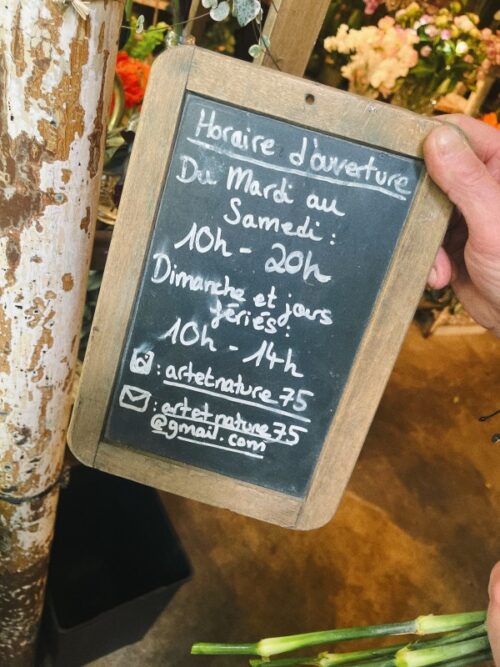 Horaire d'ouverture
Du Mardi au
Samedi :
10h - 20h
Dimanche et jours
fériés :
10h - 14h
: artetnature75
: artetnature75
@gmail.com